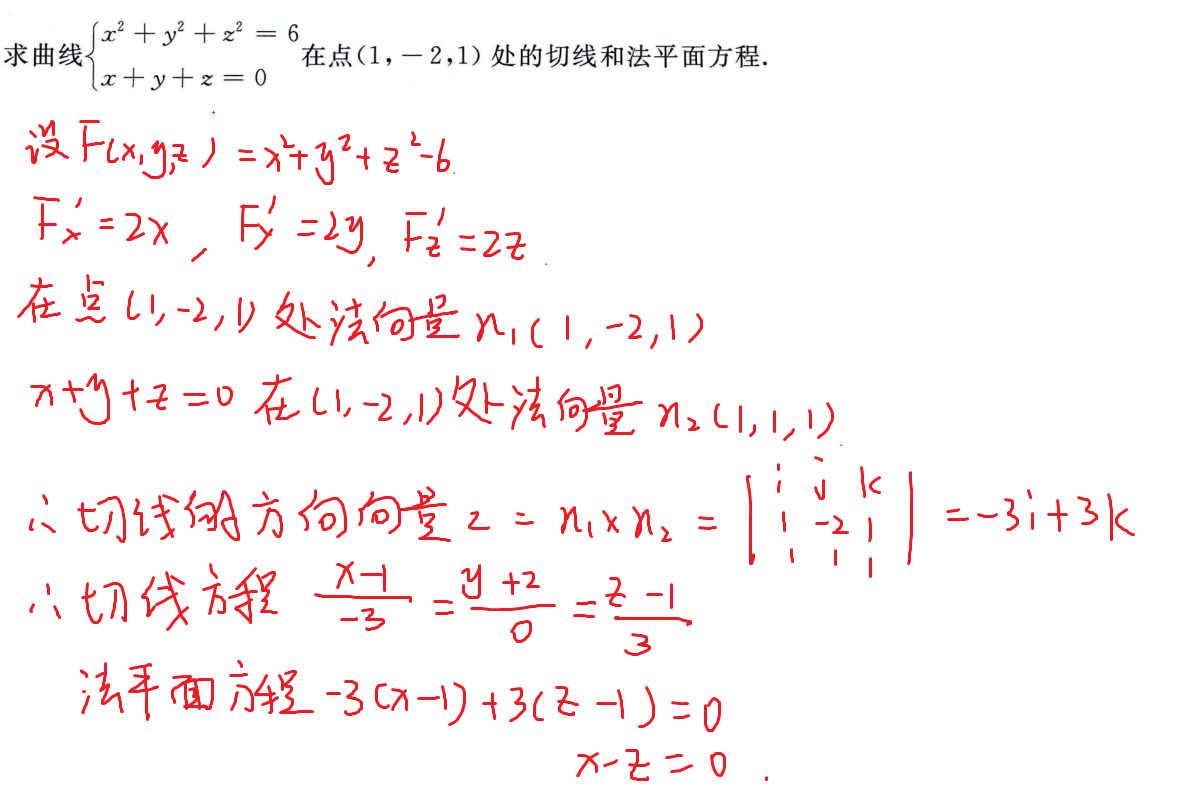 求曲线{x² + y² + z² = 6
x + y + z = 0 在点(1, −2,1) 处的切线和法平面方程.
设 F(x,y,z) = x²+y²+z²-6.
Fx′ = 2x , Fy′ = 2y, Fz′ = 2z .
在点 (1,-2,1) 处法向量 n₁( 1, -2, 1)
x+y+z=0 在(1,-2,1)处法向量 n₂(1,1,1)
∴ 切线的方向向量 z = n₁×n₂ = | i j k ; 1 -2 1 ; 1 1 1 | = -3i+3k
∴ 切线方程 (x-1)/-3 = (y+2)/0 = (z-1)/3
法平面方程 -3(x-1)+3(z-1)=0
x-z=0 .